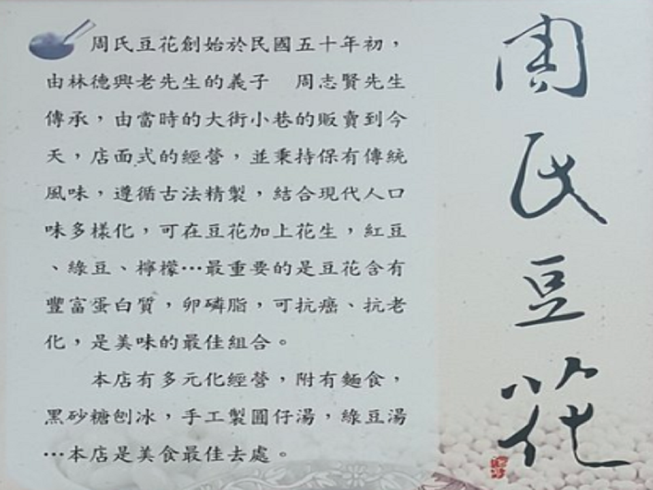 周氏豆花創始於民國五十年初，
由林德興老先生的義子　周志賢先生
傳承，由當時的大街小巷的販賣到今
天，店面式的經營，並秉持保有傳統
風味，遵循古法精製，結合現代人口
味多樣化，可在豆花加上花生，紅豆
、綠豆、檸檬…最重要的是豆花含有
豐富蛋白質，卵磷脂，可抗癌、抗老
化，是美味的最佳組合。
本店有多元化經營，附有麵食，
黑砂糖刨冰，手工製圓仔湯，綠豆湯
…本店是美食最佳去處。
周氏豆花